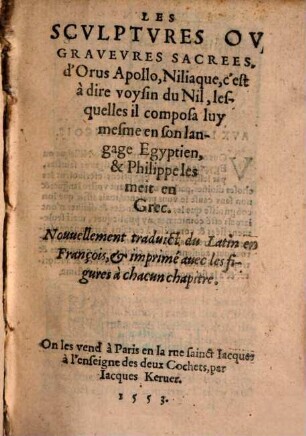 LES
SCVLPTVRES OV
GRAVEVRES SACREES,
d'Orus Apollo, Niliaque, c'est
à dire voysin du Nil, les-
quelles il composa luy
mesme en son lan-
gage Egyptien,
& Philippe les
meit en
Grec.
Nouuellement traduict du Latin en
François, & imprimé auec les fi-
gures à chacun chapitre.
On les vend à Paris en la rue sainct Iacques
à l'enseigne des deux Cochets, par
Iacques Keruer.
1553.